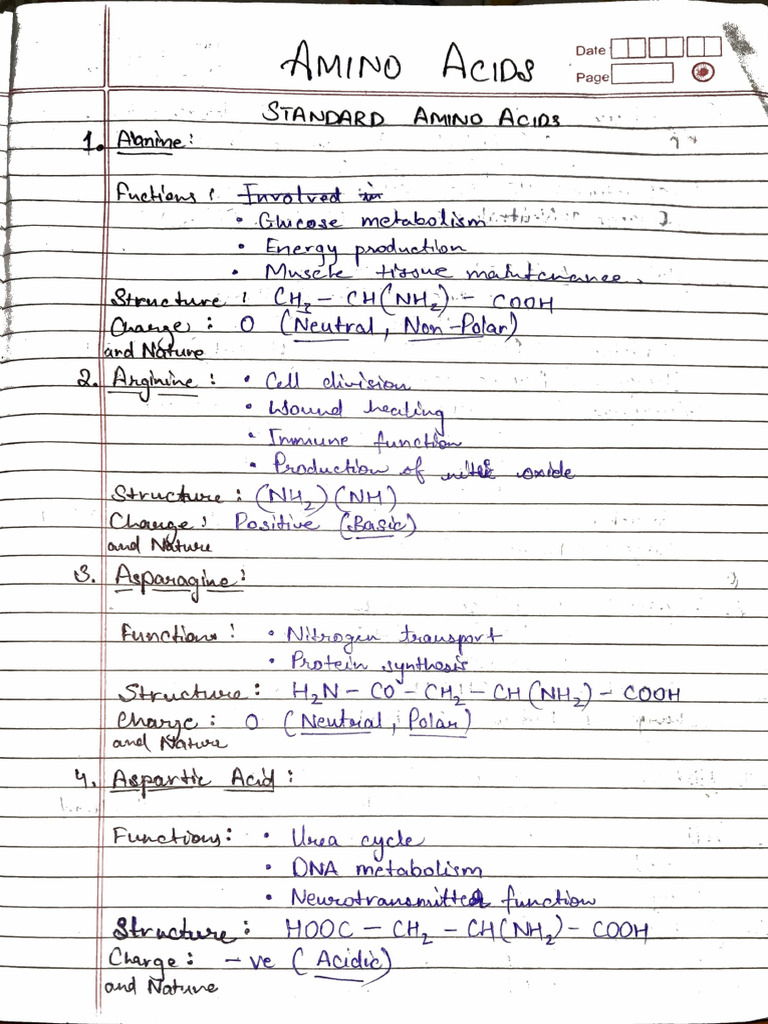 AMINO ACIDS
Date
Page
STANDARD AMINO ACIDS
1. Alanine:
Fuctions: Involved in
• Glucose metabolism
• Energy production
• Muscle tissue maintenance.
Structure: CH₃ – CH(NH₂) – COOH
Charge: 0 (Neutral, Non-Polar)
and Nature
2. Arginine: • Cell division
• Wound healing
• Immune function
• Production of nitric oxide
Structure: (NH₂)(NH)
Charge: Positive (Basic)
and Nature
3. Asparagine:
Functions: • Nitrogen transport
• Protein synthesis
Structure: H₂N – CO – CH₂ – CH(NH₂) – COOH
Charge: 0 (Neutral, Polar)
and Nature
4. Aspartic Acid:
Functions: • Urea cycle
• DNA metabolism
• Neurotransmitter function
Structure: HOOC – CH₂ – CH(NH₂) – COOH
Charge: -ve (Acidic)
and Nature